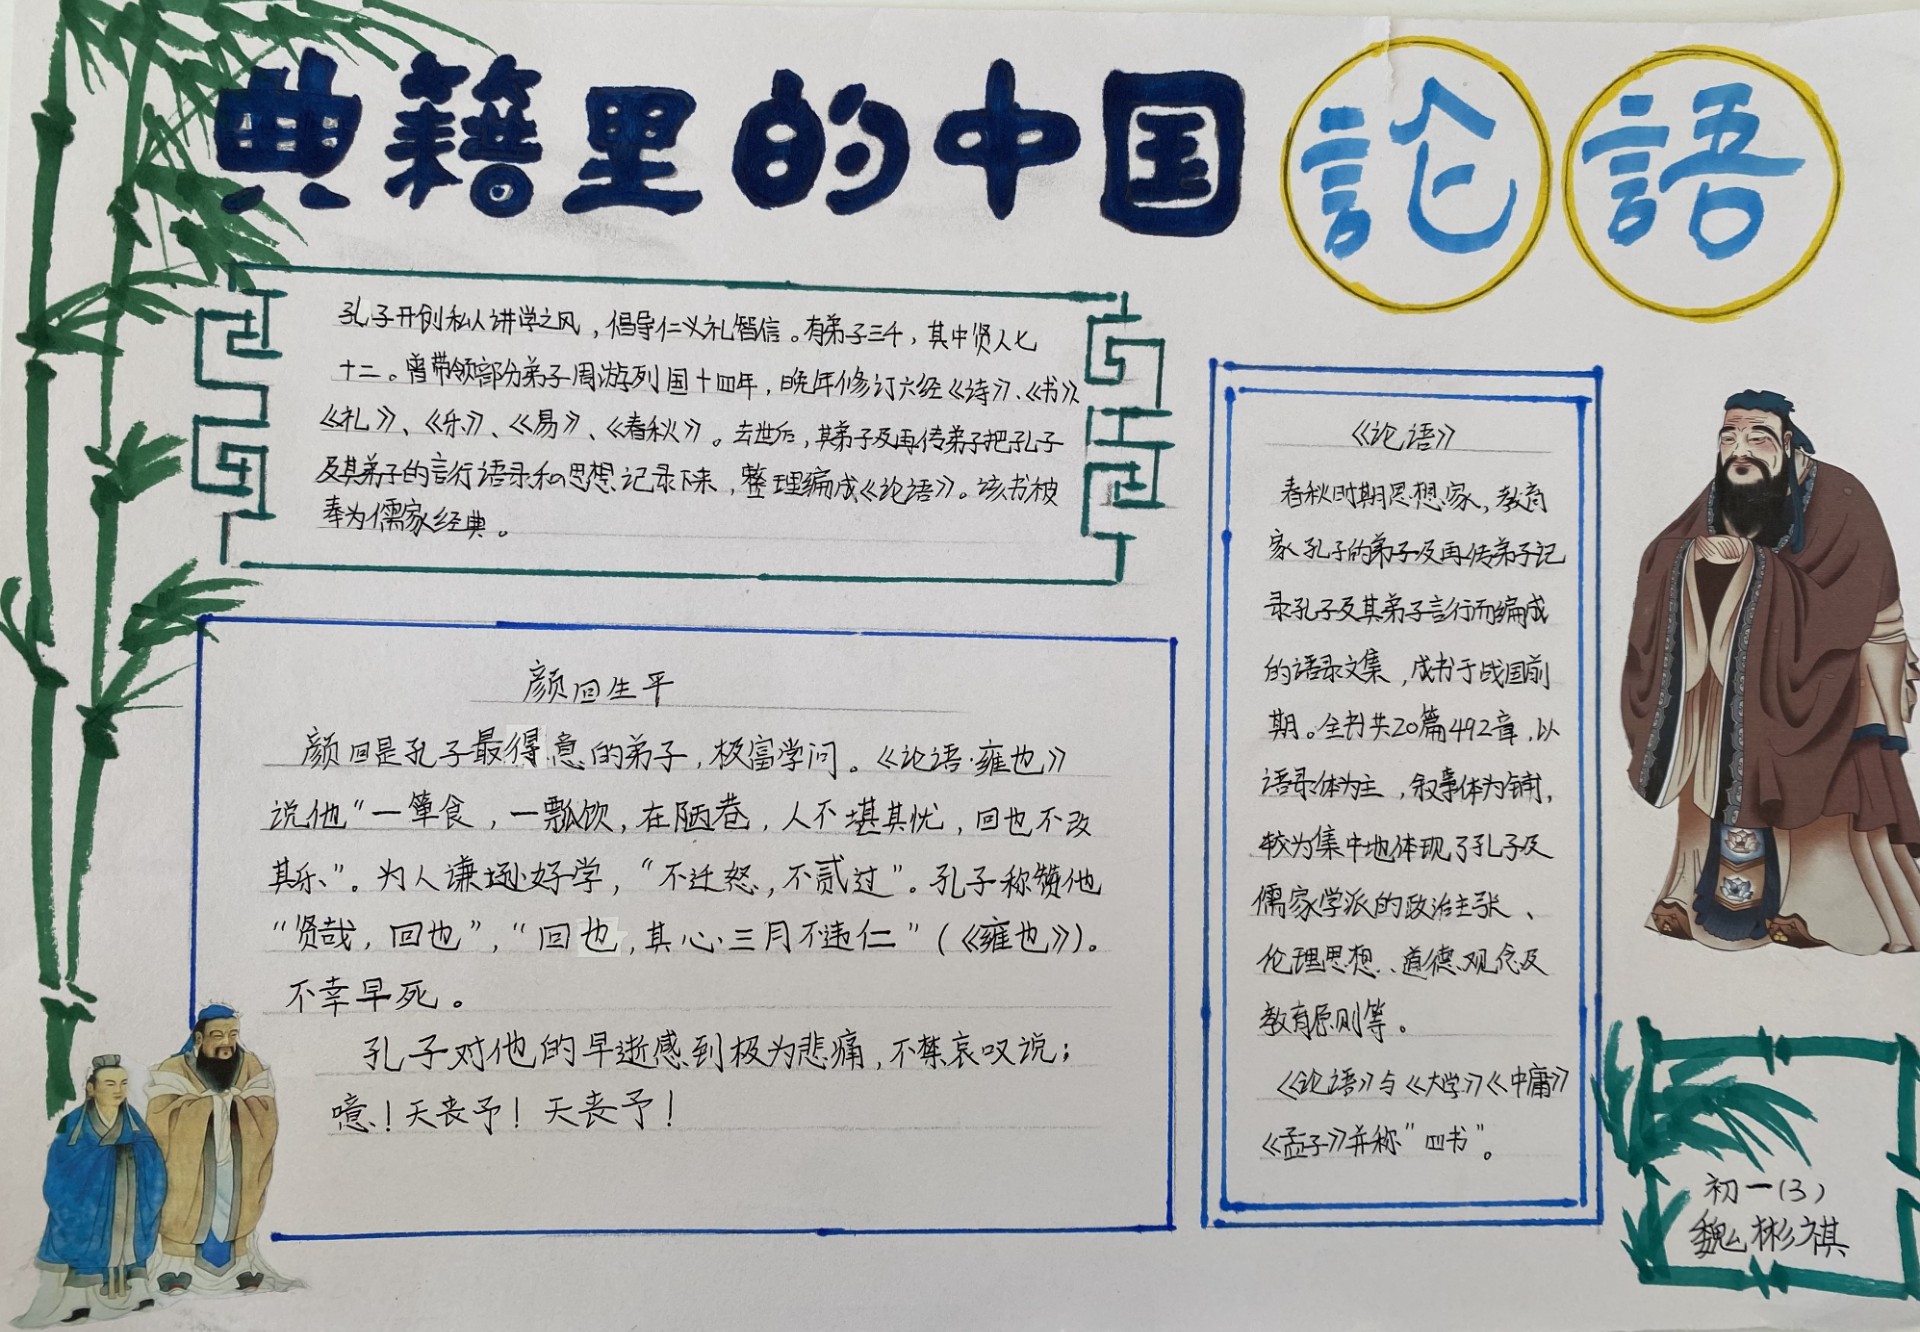 典籍里的中国
論語
孔子开创私人讲学之风，倡导仁义礼智信。有弟子三千，其中贤人七
十二。曾带领部分弟子周游列国十四年，晚年修订六经《诗》、《书》、
《礼》、《乐》、《易》、《春秋》。去世后，其弟子及再传弟子把孔子
及其弟子的言行语录和思想记录下来，整理编成《论语》。该书被
奉为儒家经典。
颜回生平
颜回是孔子最得意的弟子，极富学问。《论语·雍也》
说他“一箪食，一瓢饮，在陋巷，人不堪其忧，回也不改
其乐”。为人谦逊好学，“不迁怒，不贰过”。孔子称赞他
“贤哉，回也”，“回也，其心三月不违仁”（《雍也》）。
不幸早死。
孔子对他的早逝感到极为悲痛，不禁哀叹说：
噫！天丧予！天丧予！
《论语》
春秋时期思想家，教育
家孔子的弟子及再传弟子记
录孔子及其弟子言行而编成
的语录文集，成书于战国前
期。全书共20篇492章，以
语录体为主，叙事体为辅，
较为集中地体现了孔子及
儒家学派的政治主张、
伦理思想、道德观念及
教育原则等。
《论语》与《大学》《中庸》
《孟子》并称“四书”。
初一（3）
魏彬祺